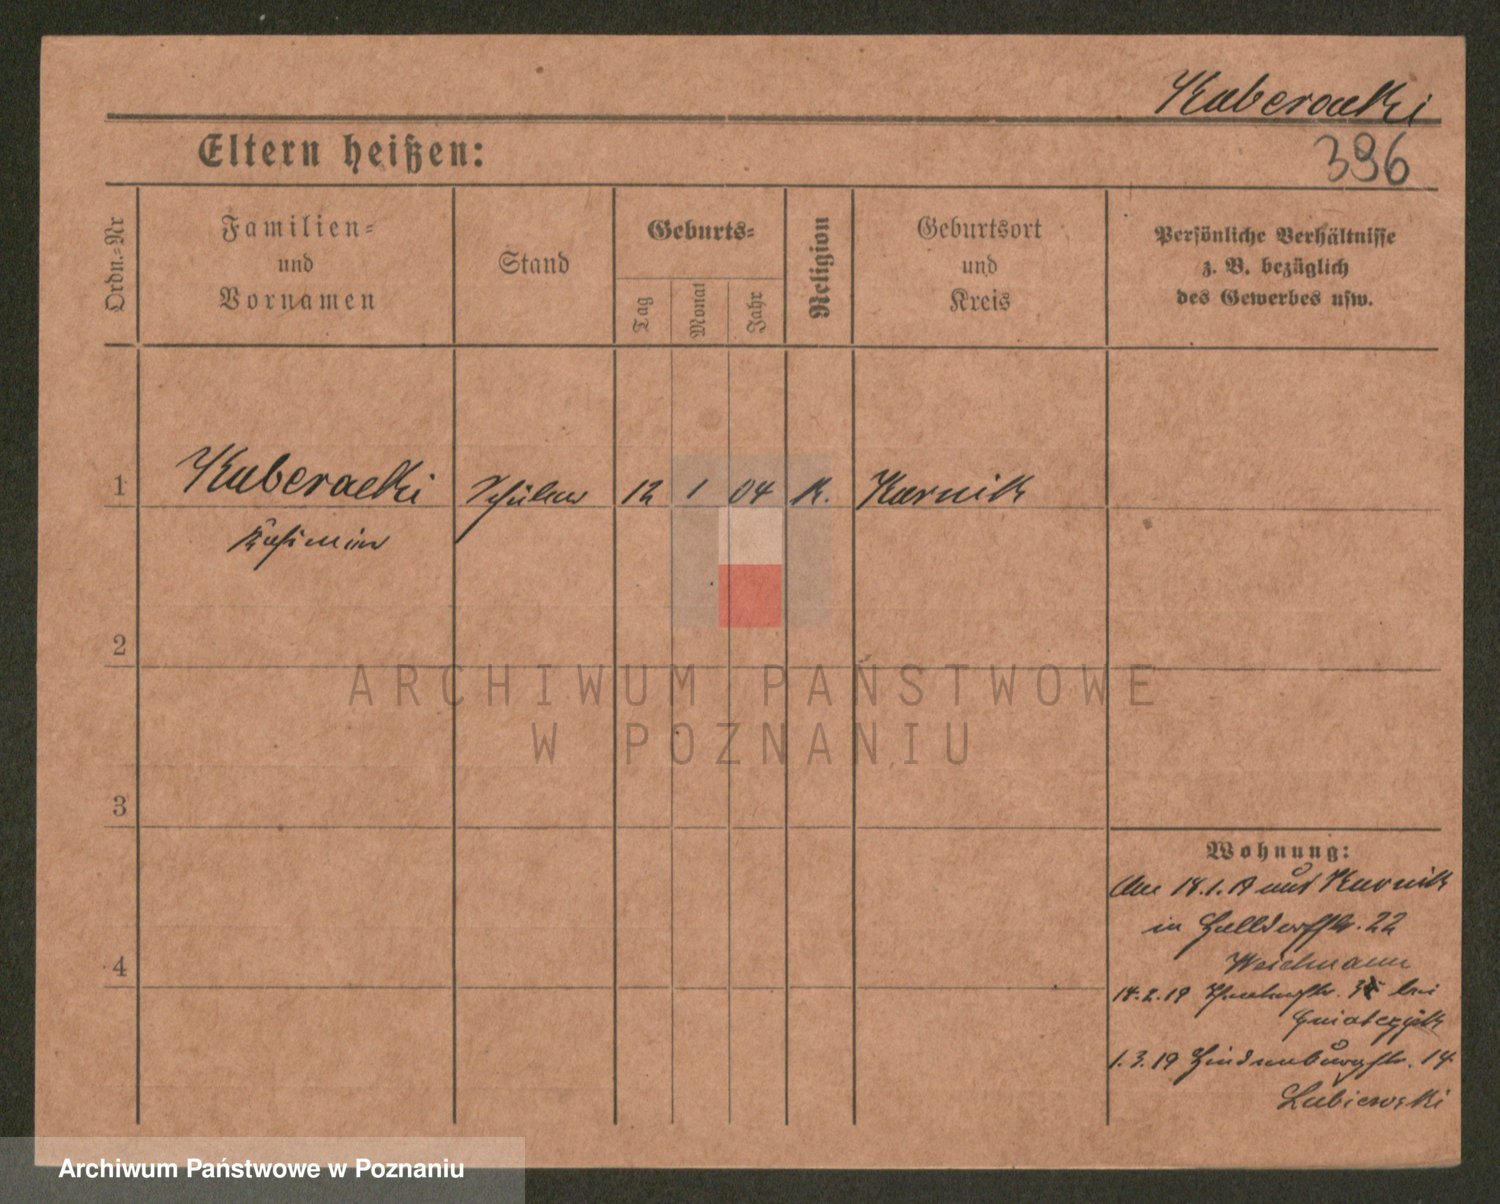 Kuberacki
396
Eltern heißen:
Ordn.=Nr
Familien=
und
Vornamen
Stand
Geburts=
Tag
Monat
Jahr
Religion
Geburtsort
und
Kreis
Persönliche Verhältnisse
z. B. bezüglich
des Gewerbes usw.
1
Kuberacki Schüler 12 1 04 K. Kurnik
Kasimir
2
3
4
Wohnung:
Am 18.1.19 aus Kurnik
in Halldorffstr. 22
Weichmann
14.2.19 bei
1.3.19 Hindenburgstr. 14
Lubiewski
ARCHIWUM PAŃSTWOWE
W POZNANIU
Archiwum Państwowe w Poznaniu